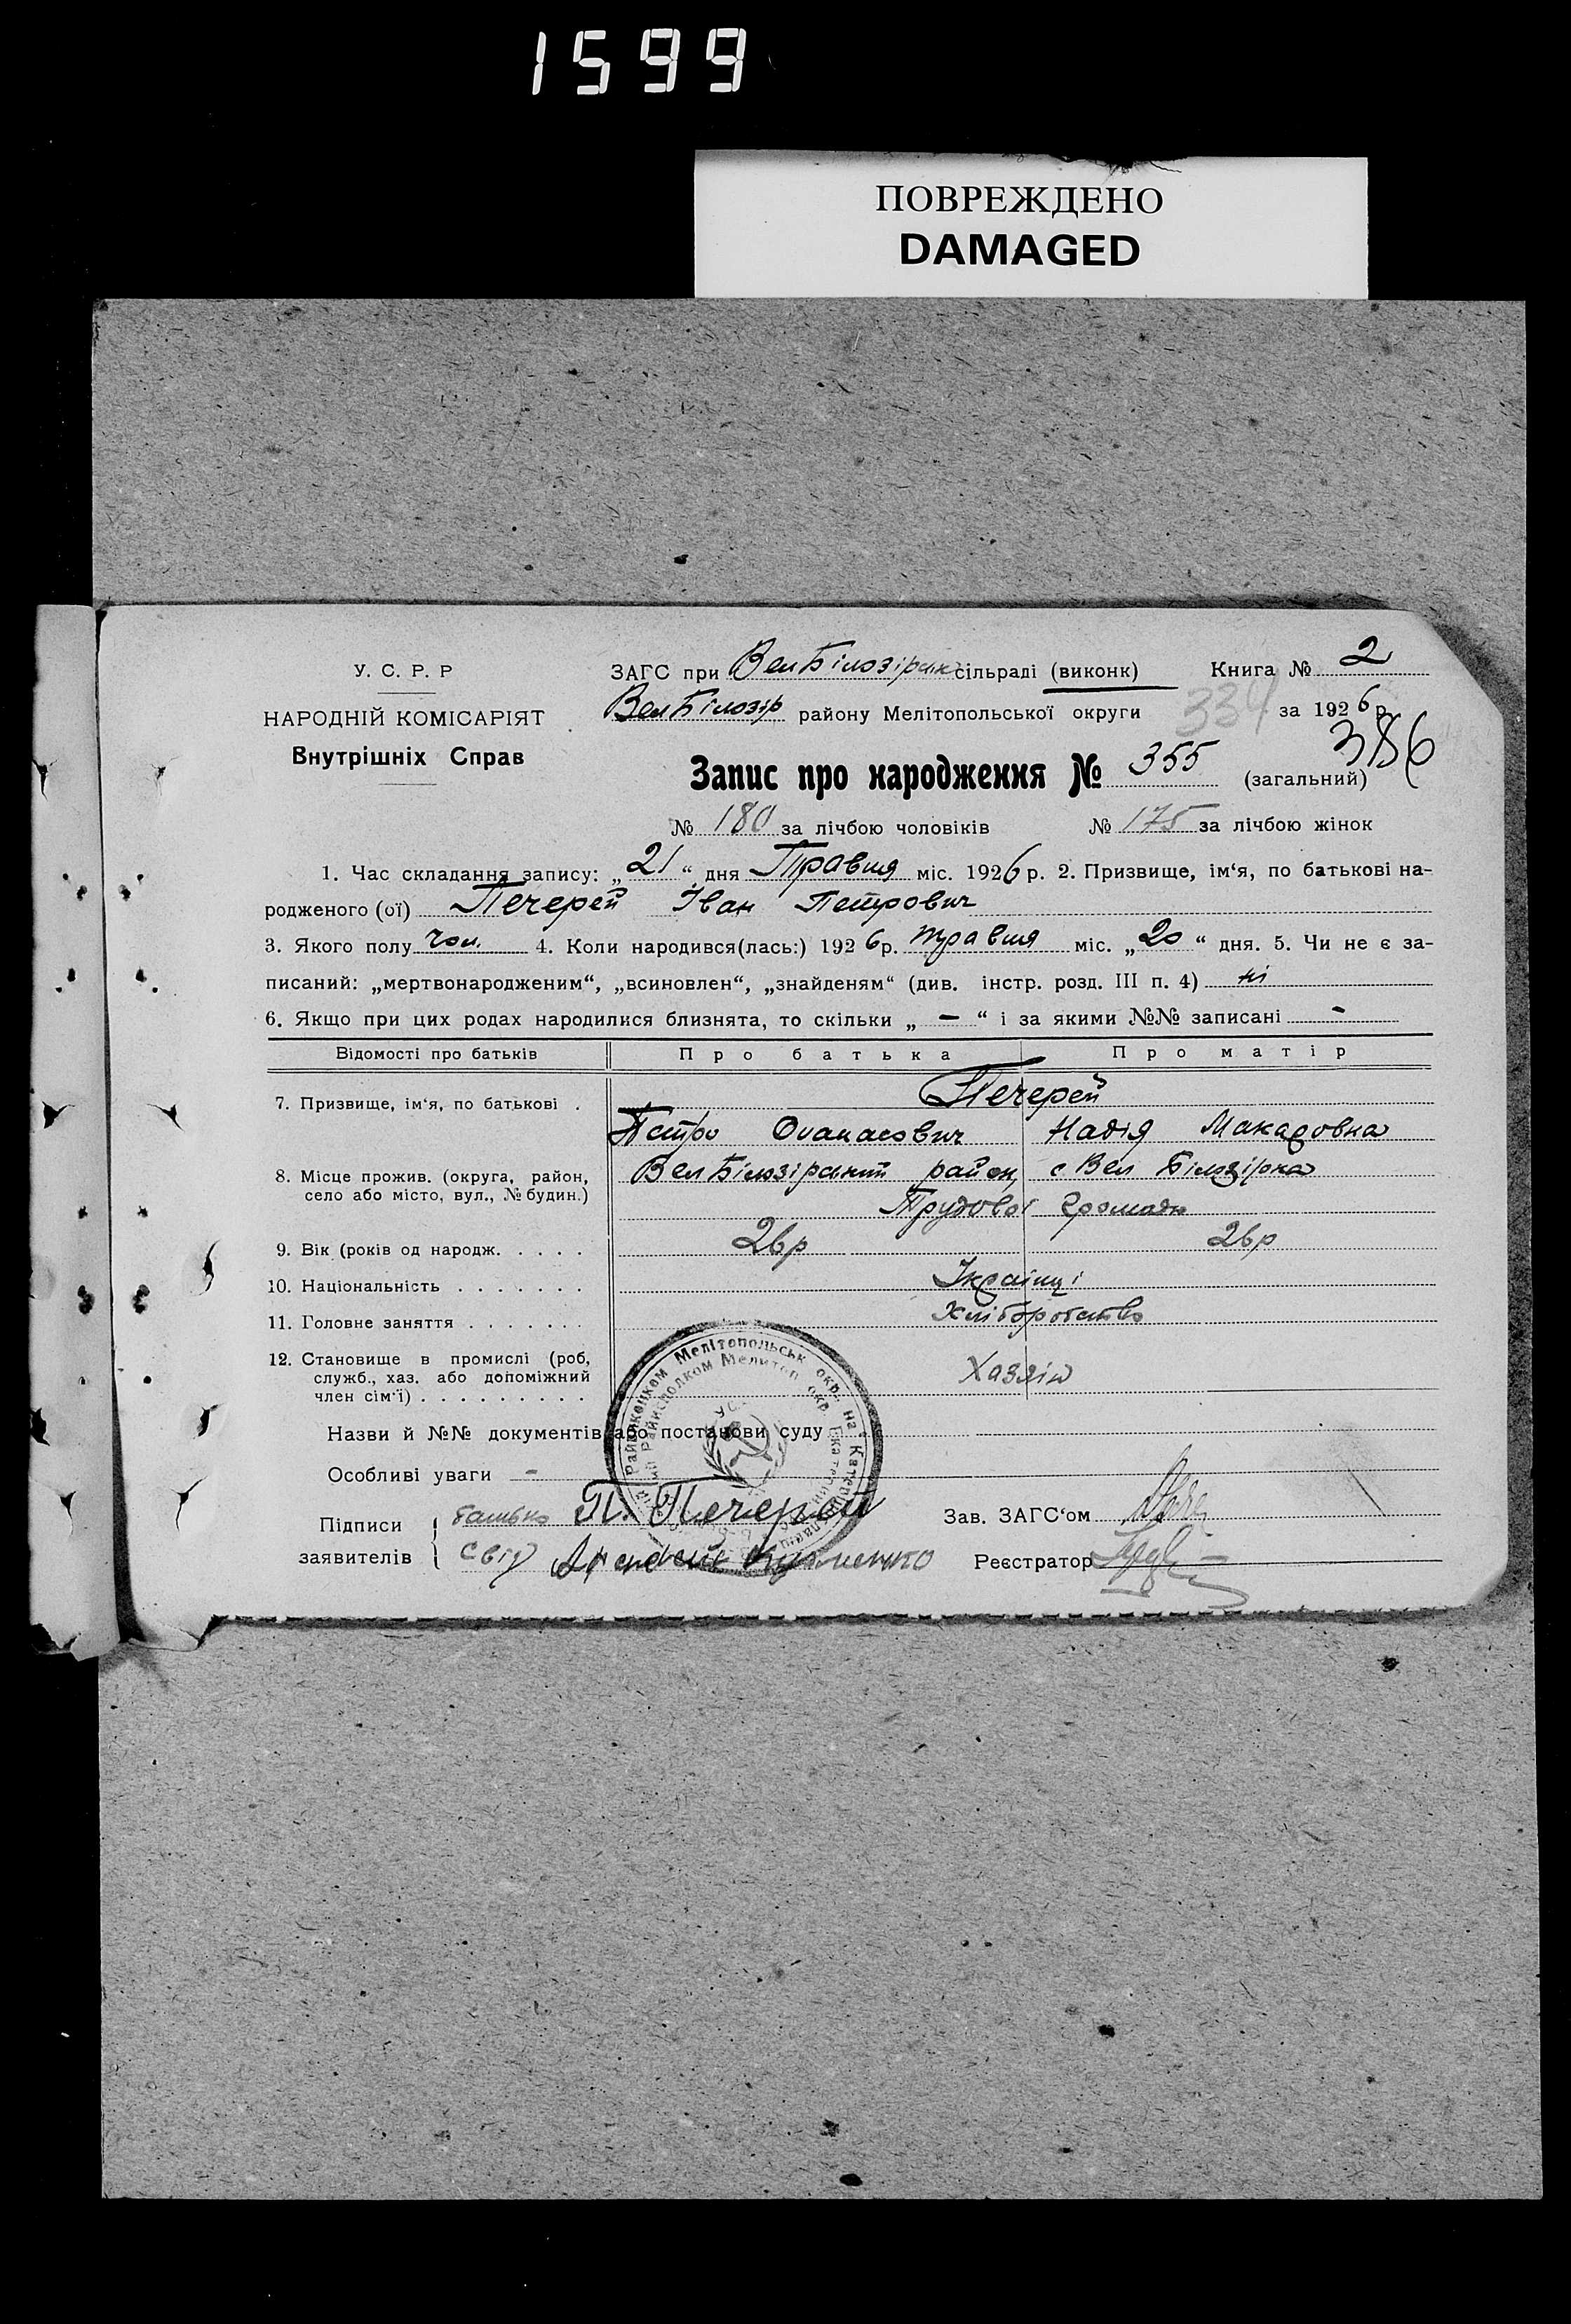 1599
ПОВРЕЖДЕНО
DAMAGED
У. С. Р. Р
НАРОДНІЙ КОМІСАРІЯТ
Внутрішніх Справ
ЗАГС при Вел Білозірськ сільраді (виконк) Книга № 2
Вел Білозір району Мелітопольської округи 334 за 1926 р.
386
Запис про народження № 355 (загальний)
№ 180 за лічбою чоловіків № 175 за лічбою жінок
1. Час складання запису: „21“ дня Травня міс. 1926 р. 2. Призвище, ім‘я, по батькові на-
родженого (ої) Печерей Іван Петрович
3. Якого полу чол. 4. Коли народився(лась:) 1926р. травня міс. „20“ дня. 5. Чи не є за-
писаний: „мертвонародженим“, „всиновлен“, „знайденям“ (див. інстр. розд. III п. 4) ні
6. Якщо при цих родах народилися близнята, то скільки „ — “ і за якими №№ записані -
Відомості про батьків Про батька Про матір
7. Призвище, ім‘я, по батькові . Печерей
Петро Опанасович Надія Макаровна
8. Місце прожив. (округа, район, Вел Білозірський район, с Вел Білозірка
село або місто, вул., № будин.)
Трудової громади
9. Вік (років од народж. . . . . 26р 26р
10. Національність . . . . . . . Українці
11. Головне заняття . . . . . . . Хліборобство
12. Становище в промислі (роб,
служб., хаз. або допоміжний Хазяїн
член сім‘ї) . . . . . . . . .
Назви й №№ документів або постанови суду
Особливі уваги -
Підписи батько П. Печерей Зав. ЗАГС‘ом
заявителів свід Реєстратор